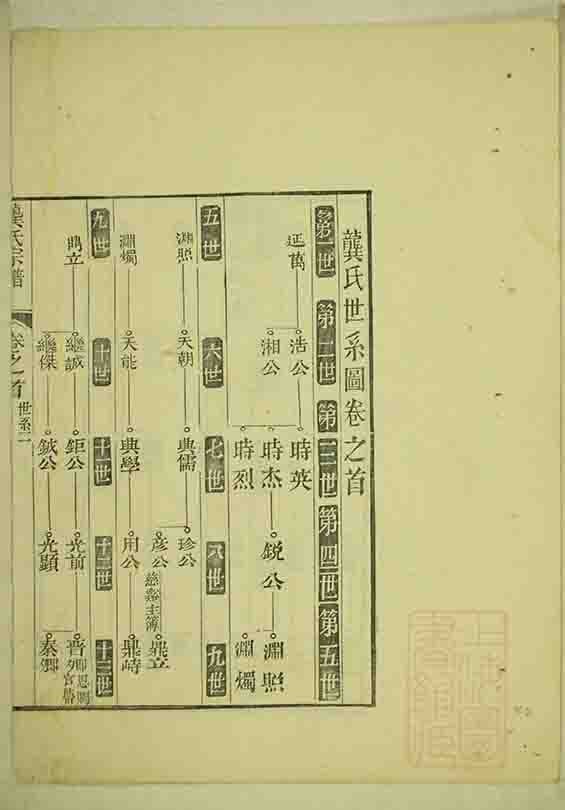 龔氏世系圖卷之首
第一世 第二世 第三世 第四世 第五世
延萬 浩公 時英
湘公 時杰 銳公 淵照
時烈 淵燭
五世 六世 七世 八世 九世
淵照 天朝 典儒 珍公
彥公 慈谿主簿 鼎立
淵燭 天能 典學 用公 鼎峙
九世 十世 十一世 十二世 十三世
鼎立 繼誠 鉅公 光前 晋
繼傑 鉞公 光顯 泰卿
龔氏宗譜 卷之首 世系二